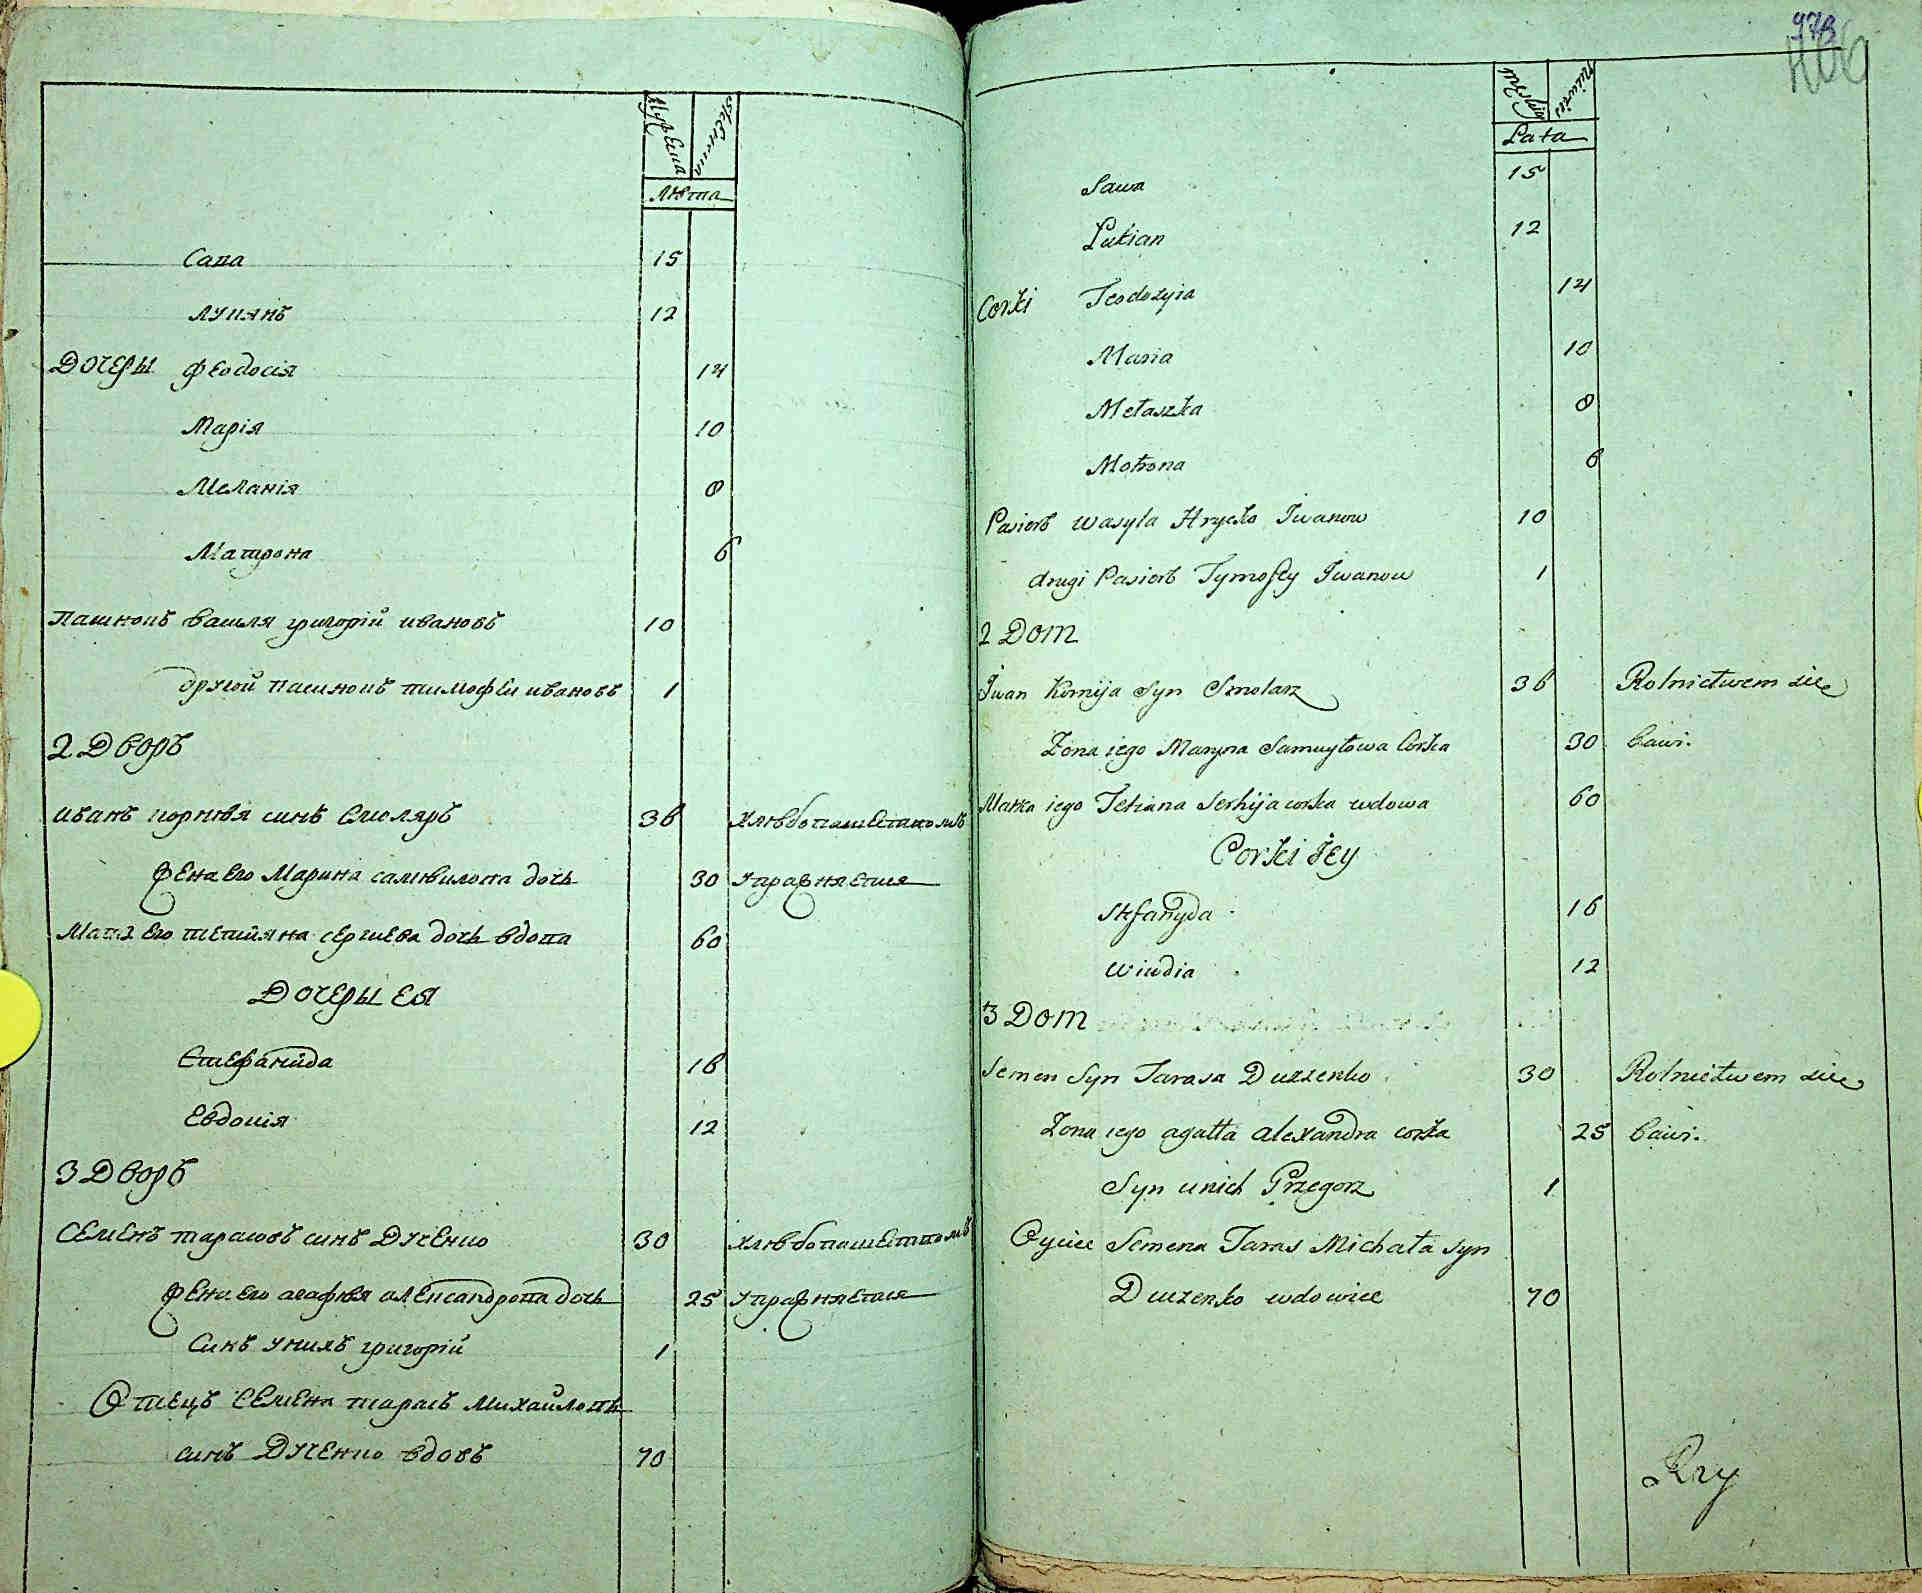 Мужеска
Женска
Лѣта
Сава 15
Лукянъ 12
Дочеры Феодосія 14
Марія 10
Меланія 8
Матрона 6
Пасинокъ Василя Григорій Ивановъ 10
другой пасинокъ Тимофей Ивановъ 1
2 Дворъ
Иванъ Корнѣя синъ Смоляръ 36 Хлѣбопашествомъ
Жена его Марина Самѣилова дочь 30 упражняется
Мать его Тетияна Сергиева дочь вдова 60
Дочеры ея
Стефанида 16
Евдокія 12
3 Дворъ
Семенъ Тарасовъ синъ Дученко 30 Хлѣбопашествомъ
Жена его Агафѣя Александрова дочь 25 упражняется
Синъ у нихъ Григорій 1
Отецъ Семена Тарасъ Михайловъ
синъ Дученко вдовъ 70
973
Męskije
Niewie
Lata
Sawa 15
Łukian 12
Corki Teodozyia 14
Maria 10
Mełaszka 8
Motrona 6
Pasierb Wasyla Hrycko Iwanow 10
drugi Pasierb Tymofiy Iwanow 1
2 Dom
Iwan Kornija Syn Smolarz 36 Rolnictwem sie
Żona iego Maryna Samuyłowa Corka 30 bawi.
Matka iego Tetiana Serhija corka wdowa 60
Corki Iey
Stefanyda 16
Wiwdia 12
3 Dom
Semen Syn Tarasa Duczenko 30 Rolnictwem sie
Żona iego agatta alexandra corka 25 bawi.
Syn unich Grzegorz 1
Oyciec Semena Taras Michała syn
Duczenko wdowiec 70